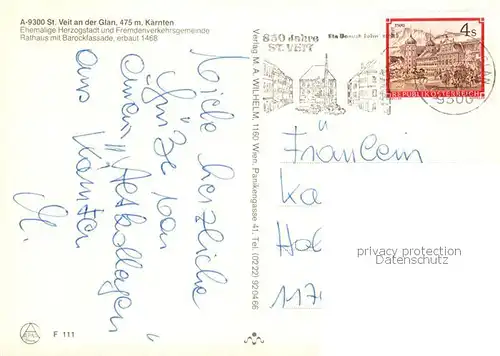 A-9300 St. Veit an der Glan, 475 m, Kärnten
Ehemalige Herzogstadt und Fremdenverkehrsgemeinde
Rathaus mit Barockfassade, erbaut 1468
Viele herzliche
Grüße von
Kärnten
aus
M.
F 111
Verlag M. A. WILHELM, 1160 Wien, Panikengasse 41, Tel. (0222) 92 04 66
850 Jahre
ST. VEIT
4 S
REPUBLIK ÖSTERREICH
9300
Fräulein
Ka
Hol
117
privacy protection
Datenschutz